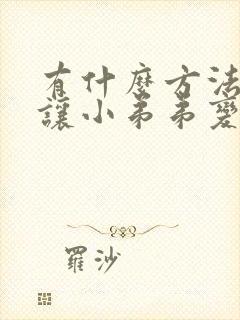 有什麼方法
讓小弟弟變
羅沙